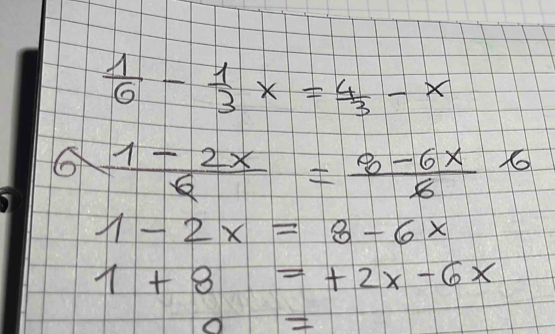 1/6 - 1/3 x = 4/3 - x
6 (1 - 2x)/6 = (8 - 6x)/6 6
1 - 2x = 8 - 6x
1 + 8 = + 2x - 6x
=